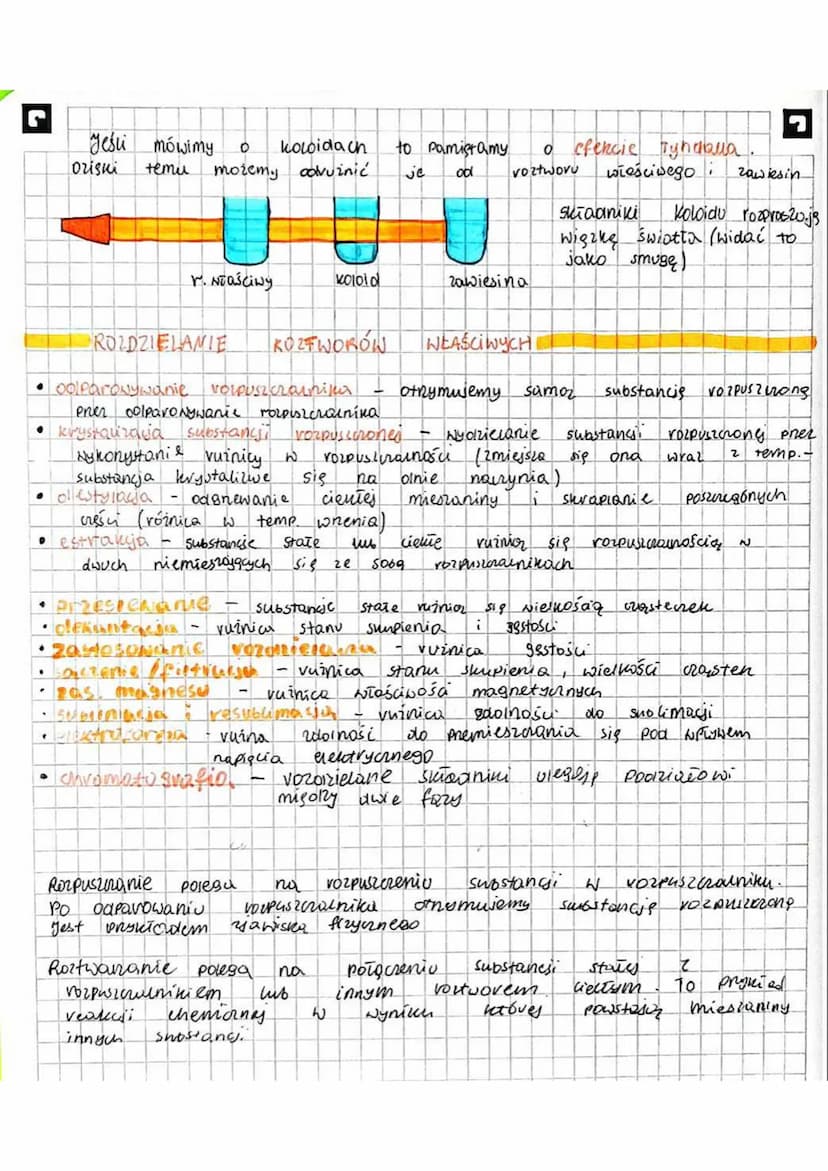 Jeśli mówimy o koloidach to pamiętamy o efekcie Tyndalla.
Dzięki temu możemy odróżnić je od roztworu właściwego i zawiesin
składniki koloidu rozpraszają
wiązkę światła (widać to
jako smugę)
r. właściwy koloid zawiesina
ROZDZIELANIE ROZTWORÓW WŁAŚCIWYCH
• odparowywanie rozpuszczalnika – otrzymujemy samą substancję rozpuszczoną
przez odparowywanie rozpuszczalnika
• krystalizacja substancji rozpuszczonej – wydzielanie substancji rozpuszczonej przez
wykorzystanie różnicy w rozpuszczalności (zmiejsza się ona wraz z temp. –
substancja krystalizuje się na dnie naczynia)
• destylacja – odgrzewanie ciekłej mieszaniny i skraplanie poszczególnych
części (różnica w temp. wrzenia)
• estrakcja – substancje stałe lub ciekłe różnią się rozpuszczalnością w
dwuch niemieszających się ze sobą rozpuszczalnikach
• przesiewanie – substancje stałe różnią się wielkością cząsteczek
• dekantacja – różnica stanu skupienia i gęstości
• zastosowanie rozdzielania – różnica gęstości
• sączenie/filtracja – różnica stanu skupienia, wielkości cząstek
• zas. magnesu – różnica właściwości magnetycznych
• sublimacja i resublimacja – różnica zdolności do sublimacji
• elektroforeza – różna zdolność do przemieszczania się pod wpływem
napięcia elektrycznego
• chromatografia – rozdzielane składniki ulegają podziałowi
między dwie fazy
Rozpuszczanie polega na rozpuszczeniu substancji w rozpuszczalniku.
Po odparowaniu rozpuszczalnika otrzymujemy substancję rozpuszczoną
Jest przykładem zjawiska fizycznego
Roztwarzanie polega na połączeniu substancji stałej z
rozpuszczalnikiem lub innym roztworem ciekłym. To przykład
reakcji chemicznej w wyniku której powstają mieszaniny
innych substancji.